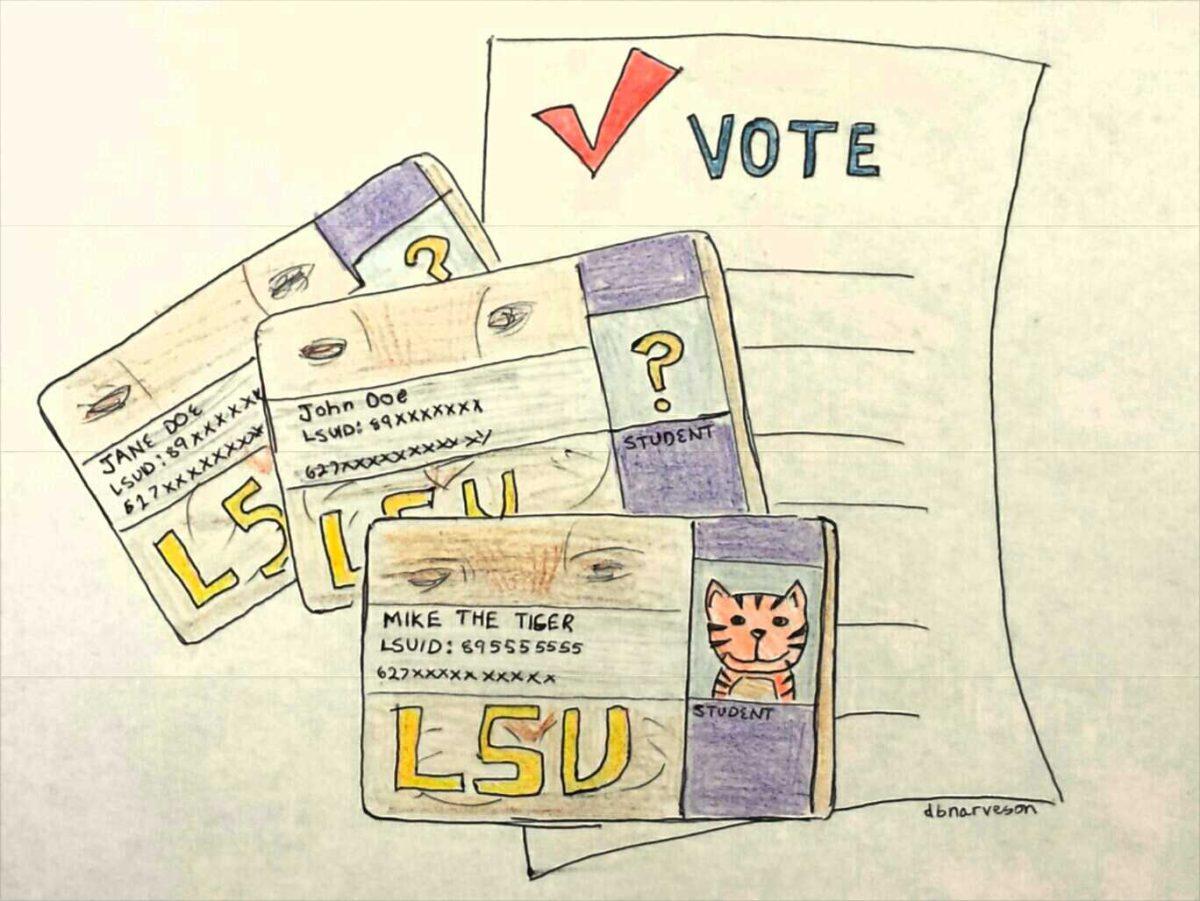 VOTE
JANE DOE
LSUD: 89XXXXXX
617XXXXXXXXX
LS
John Doe
LSUD: 89XXXXXXX
627XXXXXXXXXXXX
STUDENT
LSU
MIKE THE TIGER
LSUID: 895555555
627XXXXX XXXXX
STUDENT
LSU
dbnarveson